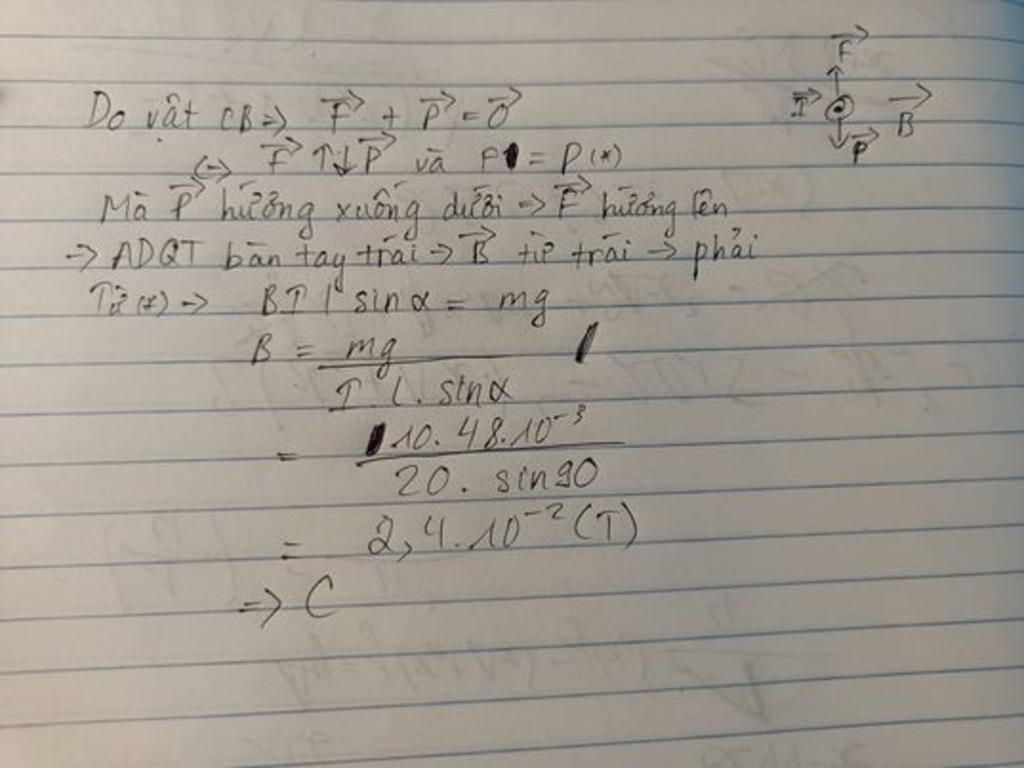 Do vật CB => F⃗ + P⃗ = 0⃗
(-) F⃗ ↑↓ P⃗ và F = P (*)
Mà P⃗ hướng xuống dưới -> F⃗ hướng lên
-> ADQT bàn tay trái -> B⃗ từ trái -> phải
Từ (*) -> B I l sin α = mg
B = mg / I l . sin α
= 10.48.10⁻³ / 20 . sin 90
= 2,4.10⁻² (T)
=> C
F⃗
I⃗ B⃗
P⃗